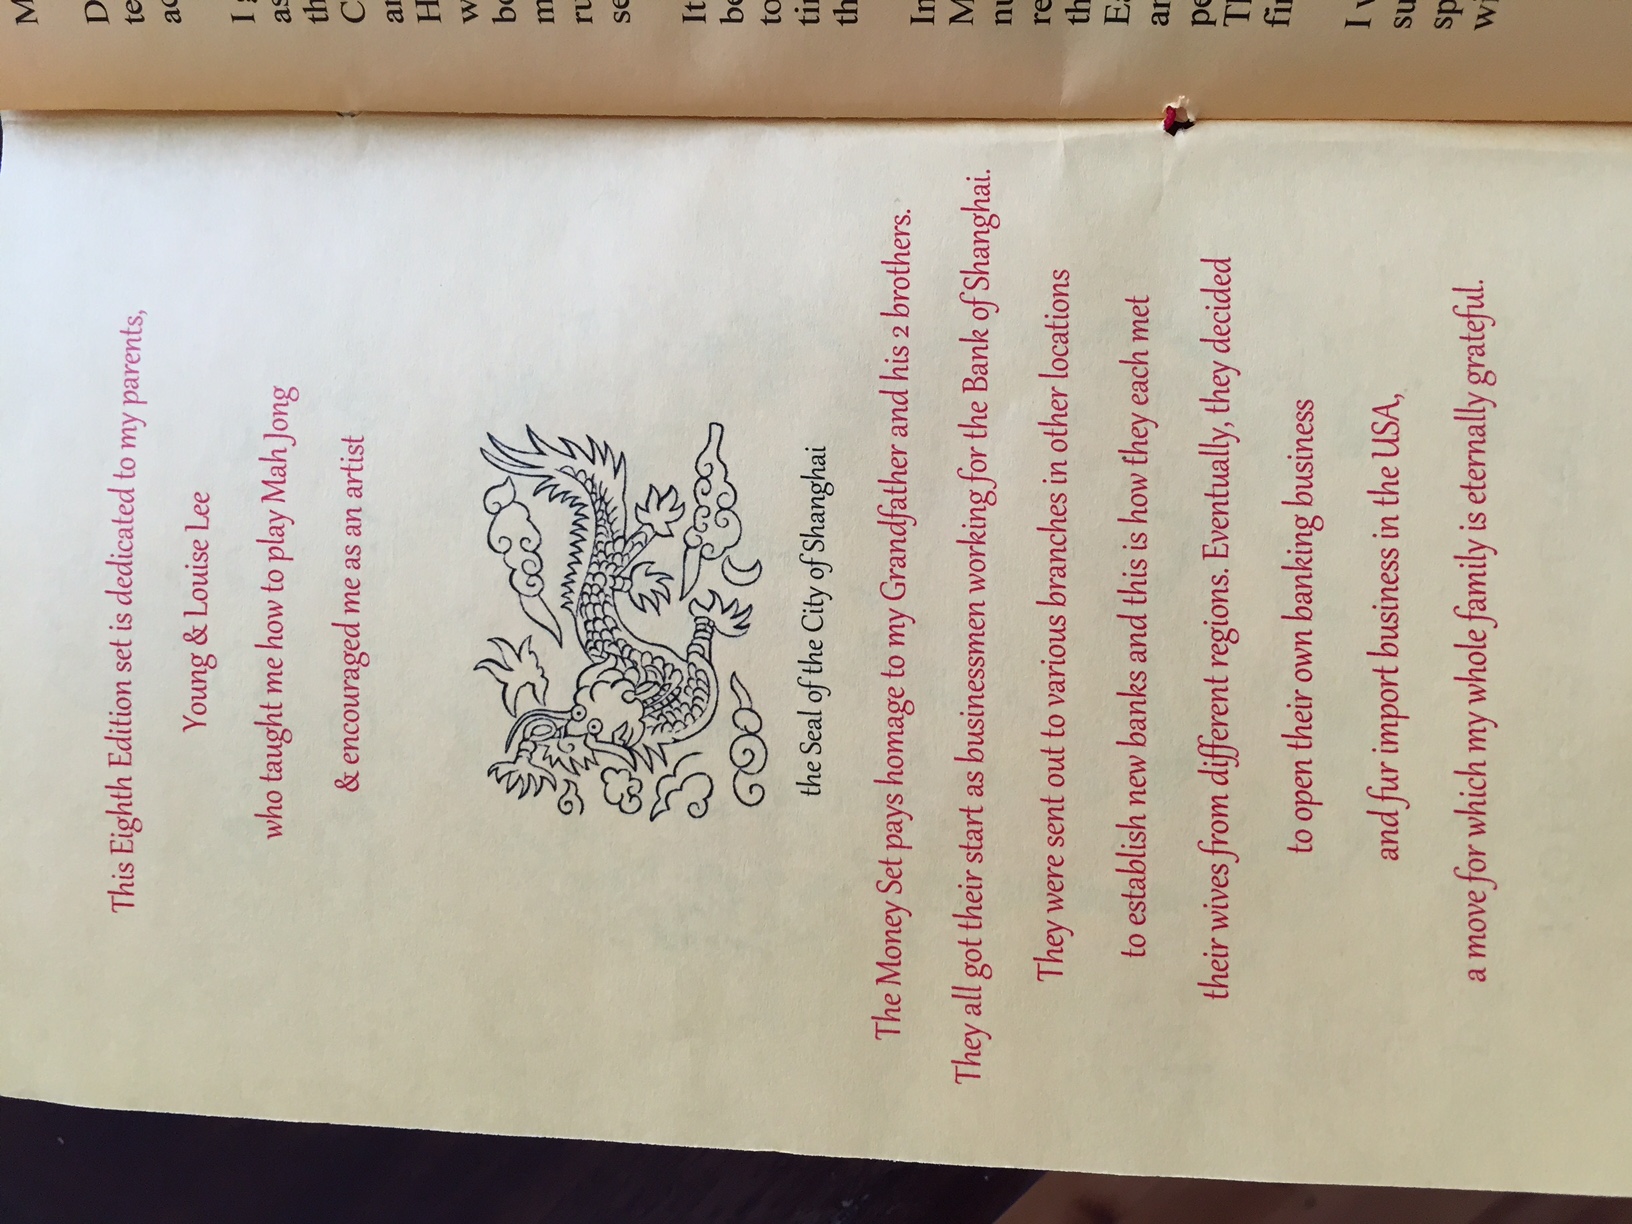 This Eighth Edition set is dedicated to my parents,
Young & Louise Lee
who taught me how to play Mah Jong
& encouraged me as an artist
the Seal of the City of Shanghai
The Money Set pays homage to my Grandfather and his 2 brothers.
They all got their start as businessmen working for the Bank of Shanghai.
They were sent out to various branches in other locations
to establish new banks and this is how they each met
their wives from different regions. Eventually, they decided
to open their own banking business
and fur import business in the USA,
a move for which my whole family is eternally grateful.